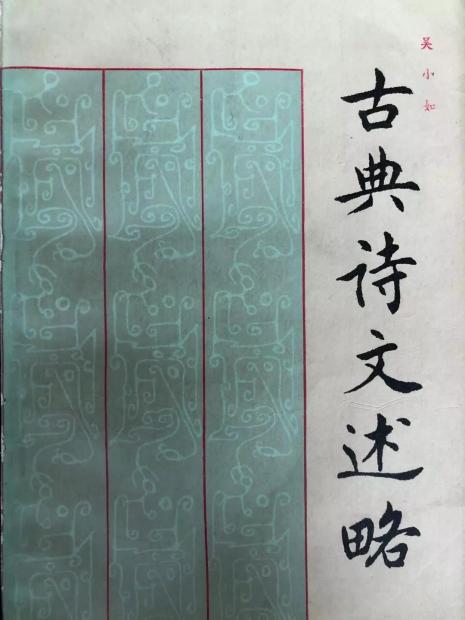 吴小如
古典诗文述略